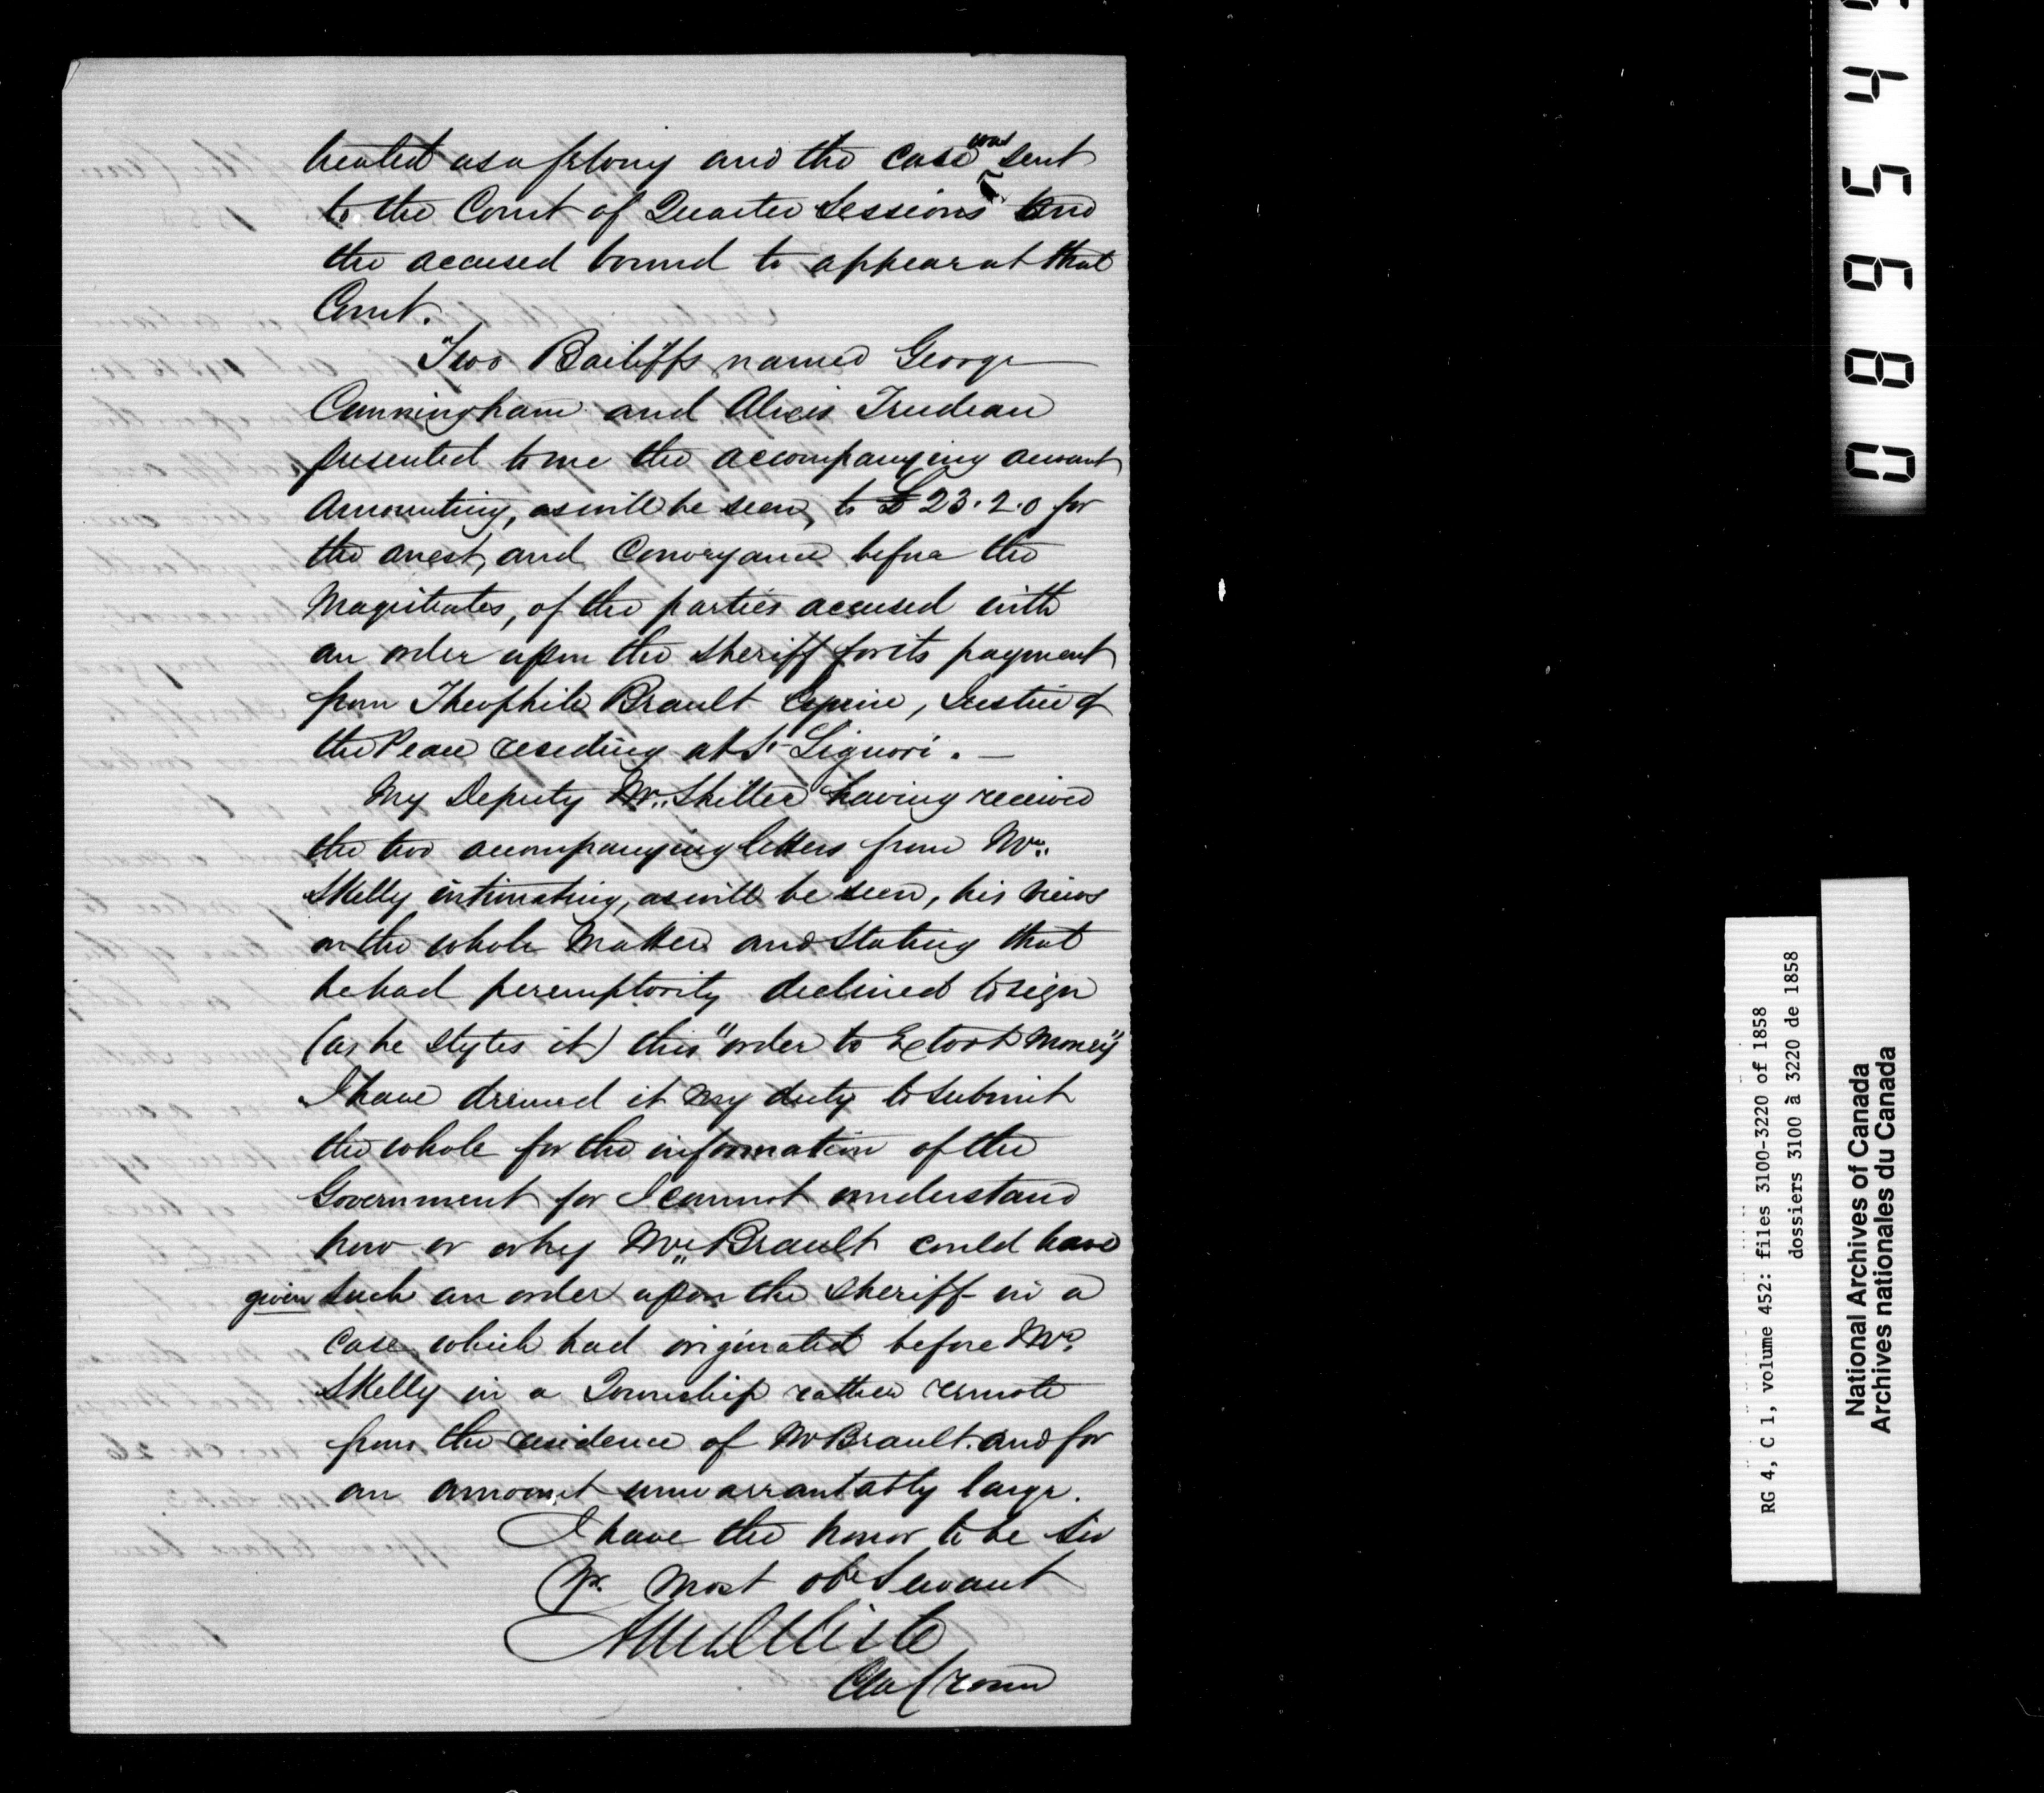 treated as a felony and the case was sent
to the Court of Quarter Sessions and
the accused bound to appear at that
Court.
Two Bailiffs named George
Cunningham and Alexis Trudeau
presented to me the accompanying account
Amounting, as will be seen, to £23.2.0 for
the arrest, and Conveyance before the
Magistrates, of the parties accused with
an order upon the Sheriff for its payment
from Theophile Brault Esquire, Justice of
the Peace residing at St Liguori. —
My Deputy Mr. Shiller having received
the two accompanying letters from Mr.
Skelly intimating, as will be seen, his views
on the whole Matter and stating that
he had peremptority declined to sign
(as he styles it) this "order to Extort Money"
I have deemed it my duty to submit
the whole for the information of the
Government for I cannot understand
how or why Mr. Brault could have
given such an order upon the Sheriff in a
case which had originated before Mr.
Skelly in a Township rather remote
from the residence of Mr Brault. and for
an amount unwarrantably large.
I have the honor to be Sir
Yr. most obt Servant
Clk Crown
089645
RG 4, C 1, volume 452: files 3100-3220 of 1858
dossiers 3100 à 3220 de 1858
National Archives of Canada
Archives nationales du Canada